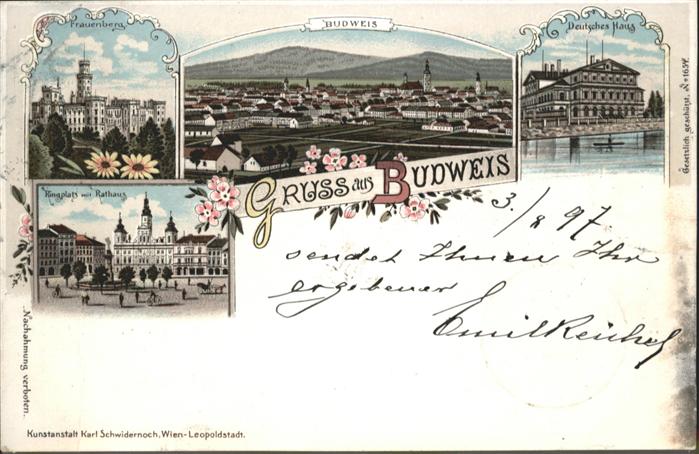 Frauenberg
BUDWEIS
Deutsches Haus
Ringplatz mit Rathaus
GRUSS aus BUDWEIS
3./8 97
sendet Ihnen Ihr
ergebener
Emil Reichel
Gesetzlich geschützt. No 1654.
Nachahmung verboten.
Kunstanstalt Karl Schwidernoch, Wien-Leopoldstadt.